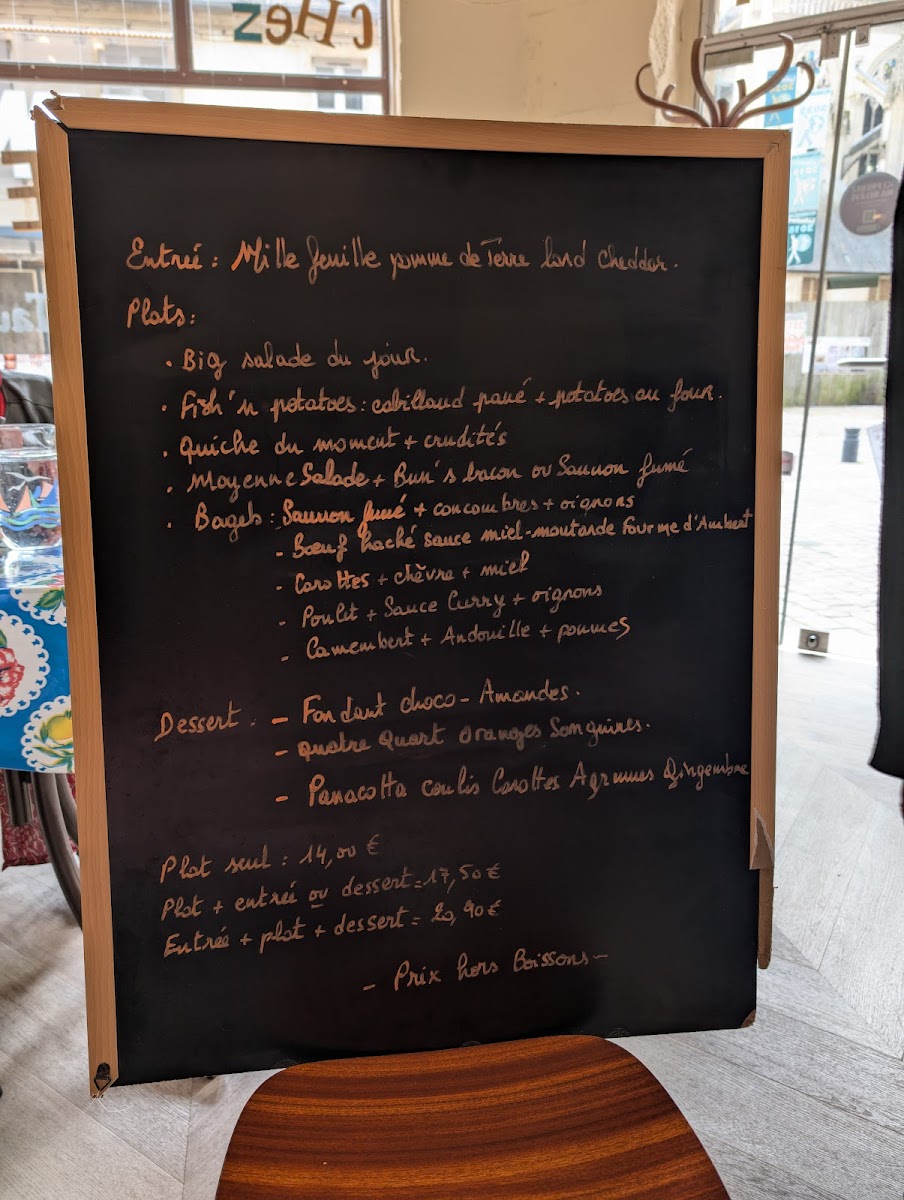 cHEZ
Entreé : Mille feuille pomme de Terre lard cheddar.
Plats :
. Big salade du jour.
. Fish'n potatoes : cabillaud pané + potatoes au four.
. Quiche du moment + crudités
. Moyenne Salade + Bun's bacon ou Saumon fumé
. Bagels : Saumon fumé + concombres + oignons
- Bœuf haché sauce miel-moutarde Fourme d'Ambert
- Carottes + chèvre + miel
- Poulet + Sauce Curry + oignons
- Camembert + Andouille + pommes
Dessert : - Fondant choco - Amandes.
- quatre Quart oranges Sanguines.
- Panacotta coulis Carottes Agrumes Gingembre
Plat seul : 14,00 €
Plat + entreé ou dessert = 17,50 €
Entreé + plat + dessert = 20,90 €
- Prix hors Boissons -